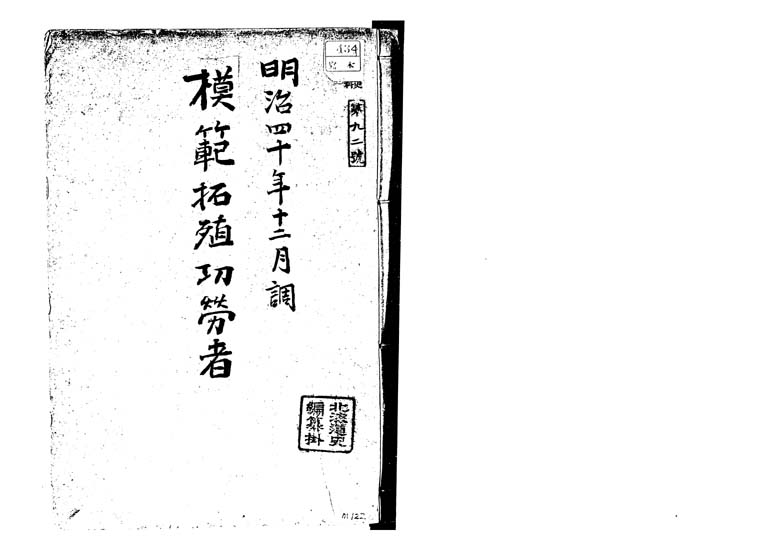 434
史料
第九二號
明治四十年十二月調
模範拓殖功勞者
北海道史
編纂掛